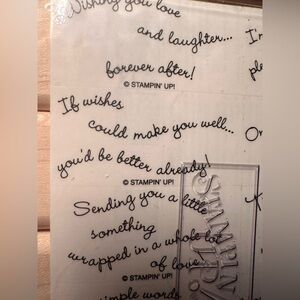 Wishing you love
and laughter... I'm
forever after! ple
© STAMPIN' UP!
If wishes
could make you well...
you'd be better already!
© STAMPIN' UP!
Sending you a little
something
wrapped in a whole lot
of love
© STAMPIN' UP!
simple words
STAMPIN' UP!